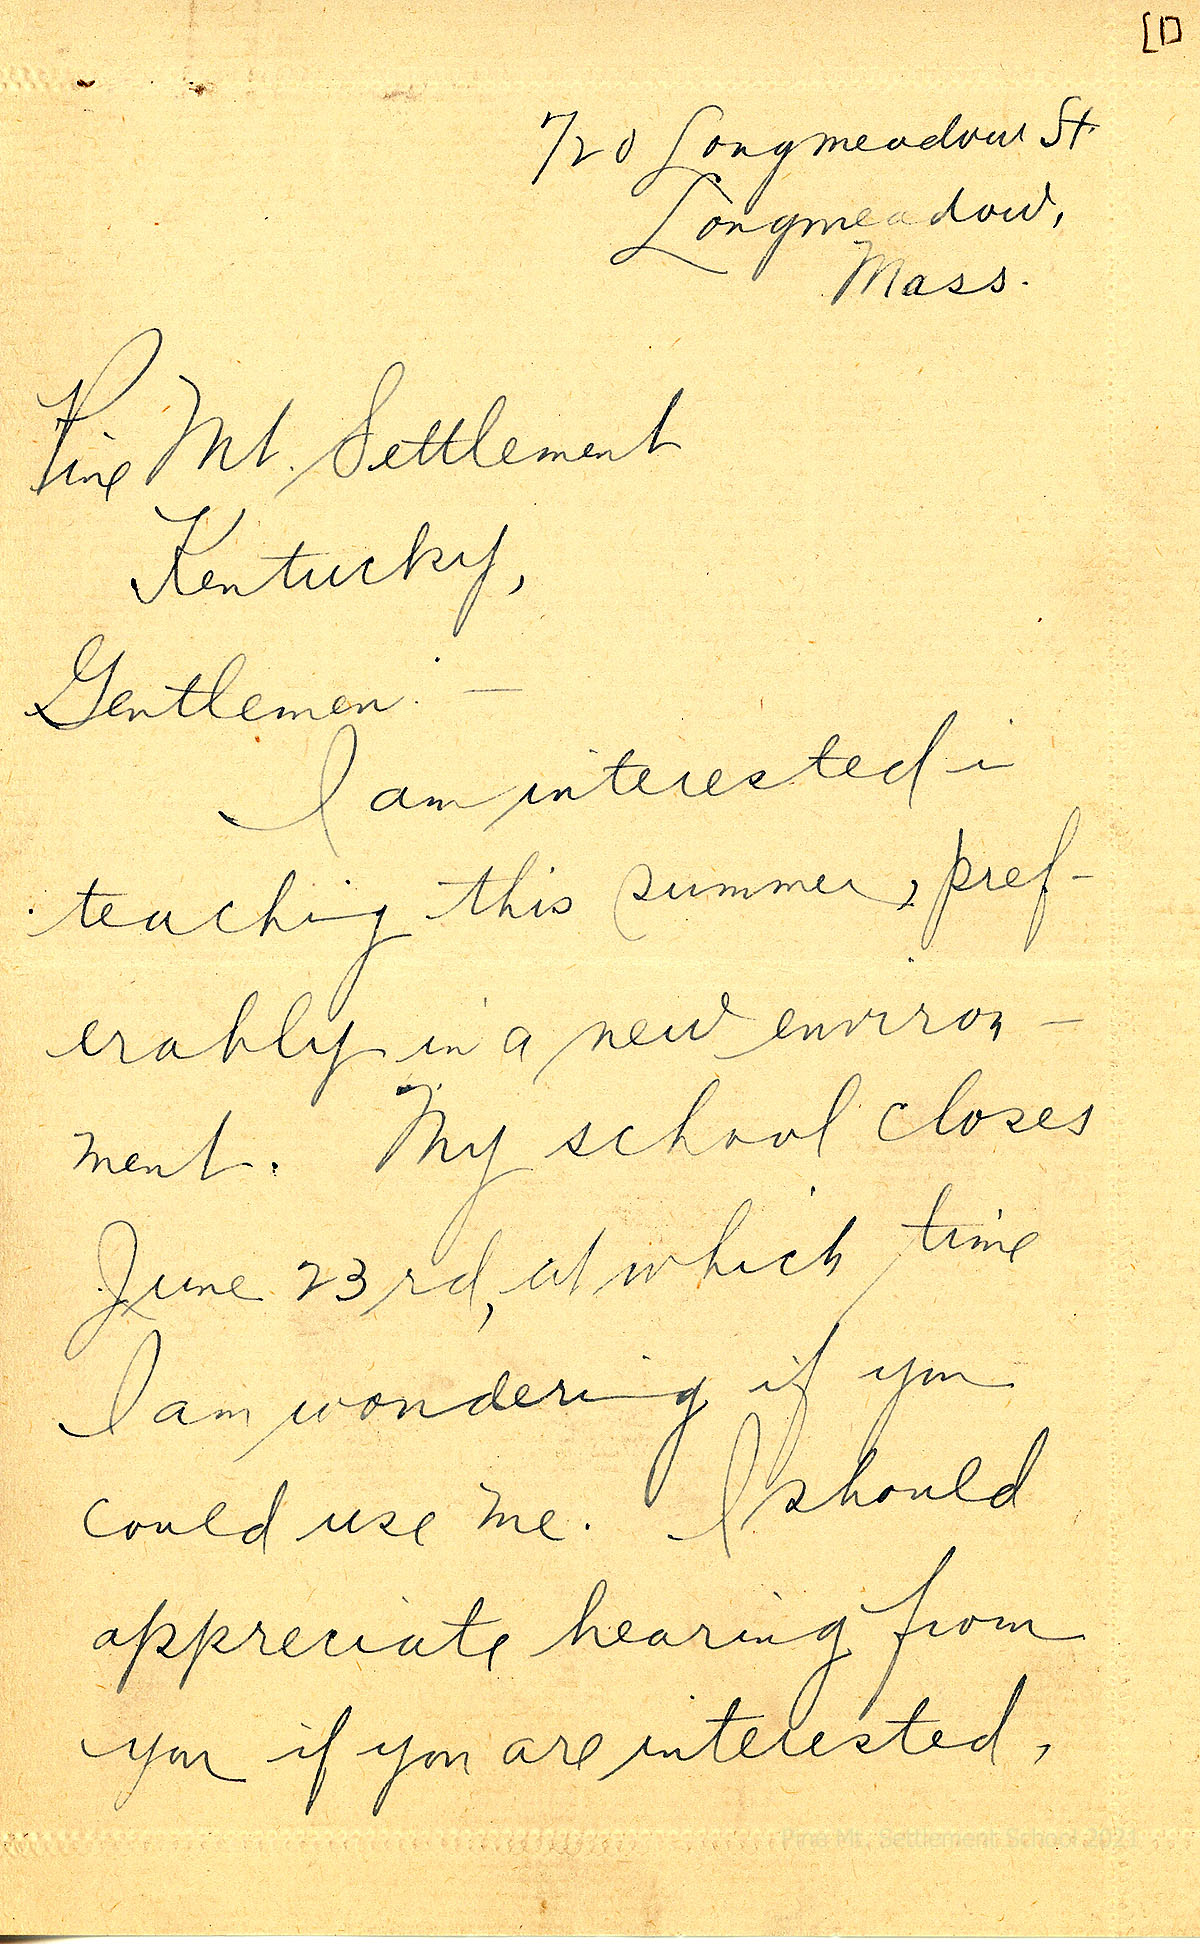 [1]
720 Longmeadow St.
Longmeadow,
Mass.
Pine Mt. Settlement
Kentucky,
Gentlemen: —
I am interested in
teaching this summer, pref-
erably in a new environ-
ment. My school closes
June 23rd, at which time
I am wondering if you
could use me. I should
appreciate hearing from
you if you are interested,
Pine Mt. Settlement School 2021